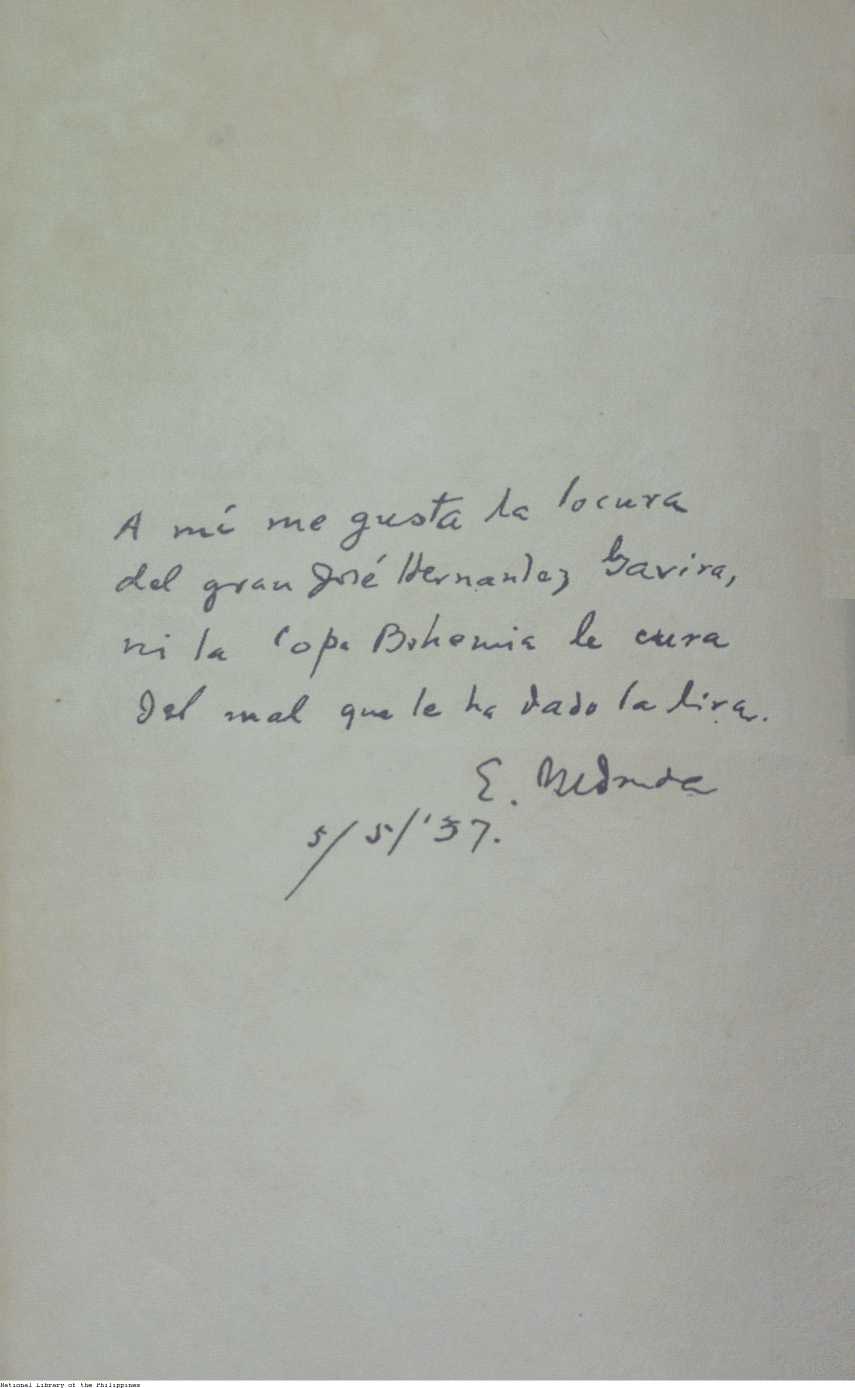 A mí me gusta la locura
del gran José Hernandez Gavira,
ni la Copa Bohemia le cura
del mal que le ha dado la lira.
E.
5/5/'37.
National Library of the Philippines